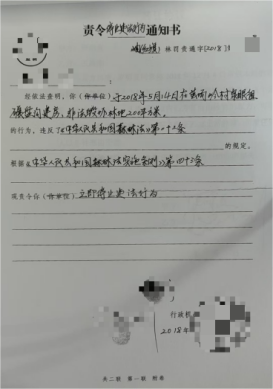 责令停止违法行为通知书
林罚责通字[2018]
经依法查明,你(你单位)于2018年5月14日在
非法毁坏林地200平方米。
的行为,违反了《中华人民共和国森林法》第二十三条
的规定。
根据《中华人民共和国森林法实施条例》第四十三条
现责令你(你单位)立即停止违法行为
行政机
2018年
共二联 第一联 附卷